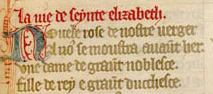 La uie de seynte elizabeth.
Nouele rose de nostre uerger
Ki nos se moustra auaūt her
one dame de graūt noblesce.
fille de rey e graūt duchesce.